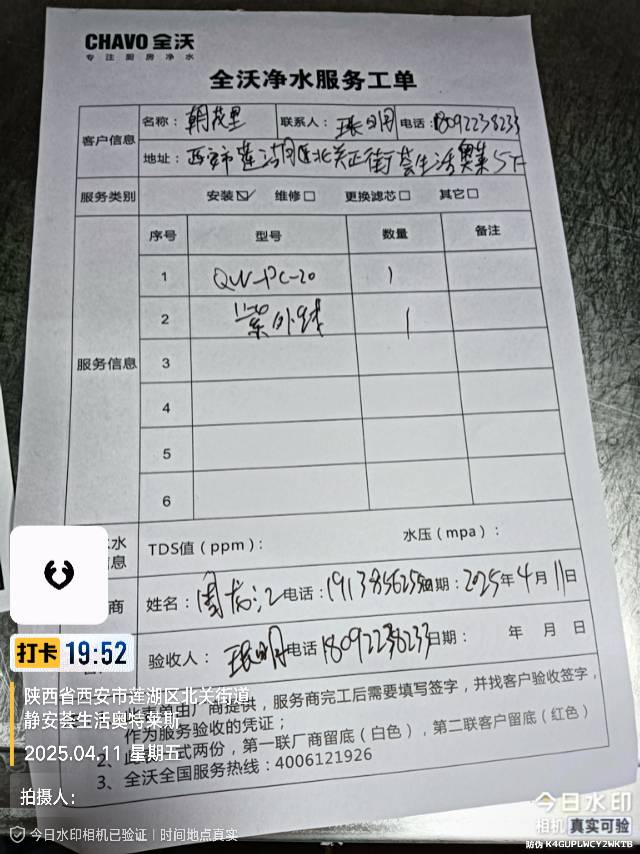 CHAVO 全沃
专注厨房净水
全沃净水服务工单
客户信息
名称：朝茂里 联系人： 电话：18092238233
地址：西安市莲湖区北关正街荟生活奥莱5F
服务类别 安装☑ 维修□ 更换滤芯□ 其它□
服务信息
序号 型号 数量 备注
1 QW-PC-20 1
2 紫外线 1
3
4
5
6
TDS值（ppm）： 水压（mpa）：
姓名： 电话： 日期：2025年4月11日
验收人： 电话18092238233日期： 年 月 日
由厂商提供，服务商完工后需要填写签字，并找客户验收签字，
作为服务验收的凭证；
2、 式两份，第一联厂商留底（白色），第二联客户留底（红色）
3、全沃全国服务热线：4006121926
打卡 19:52
陕西省西安市莲湖区北关街道
静安荟生活奥特莱斯
2025.04.11 星期五
拍摄人：
今日水印相机已验证 | 时间地点真实
今日水印
相机 真实可验
防伪 K4GUPLWCY2WKTB